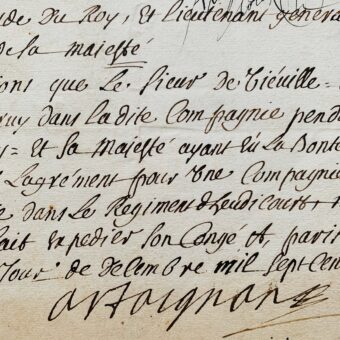 de du Roy, et Lieutenant genera
de la majesté
ions que Le sieur de Tiéville =
ruy dans la dite Compagnie pend
y = Et sa Majesté ayant Eü La Bonté
Lagrément pour Une Compagnie
dans Le Regiment d'heudicourt,
fait Expedier son Congé
Jour de decembre mil sept Cen
artaignan